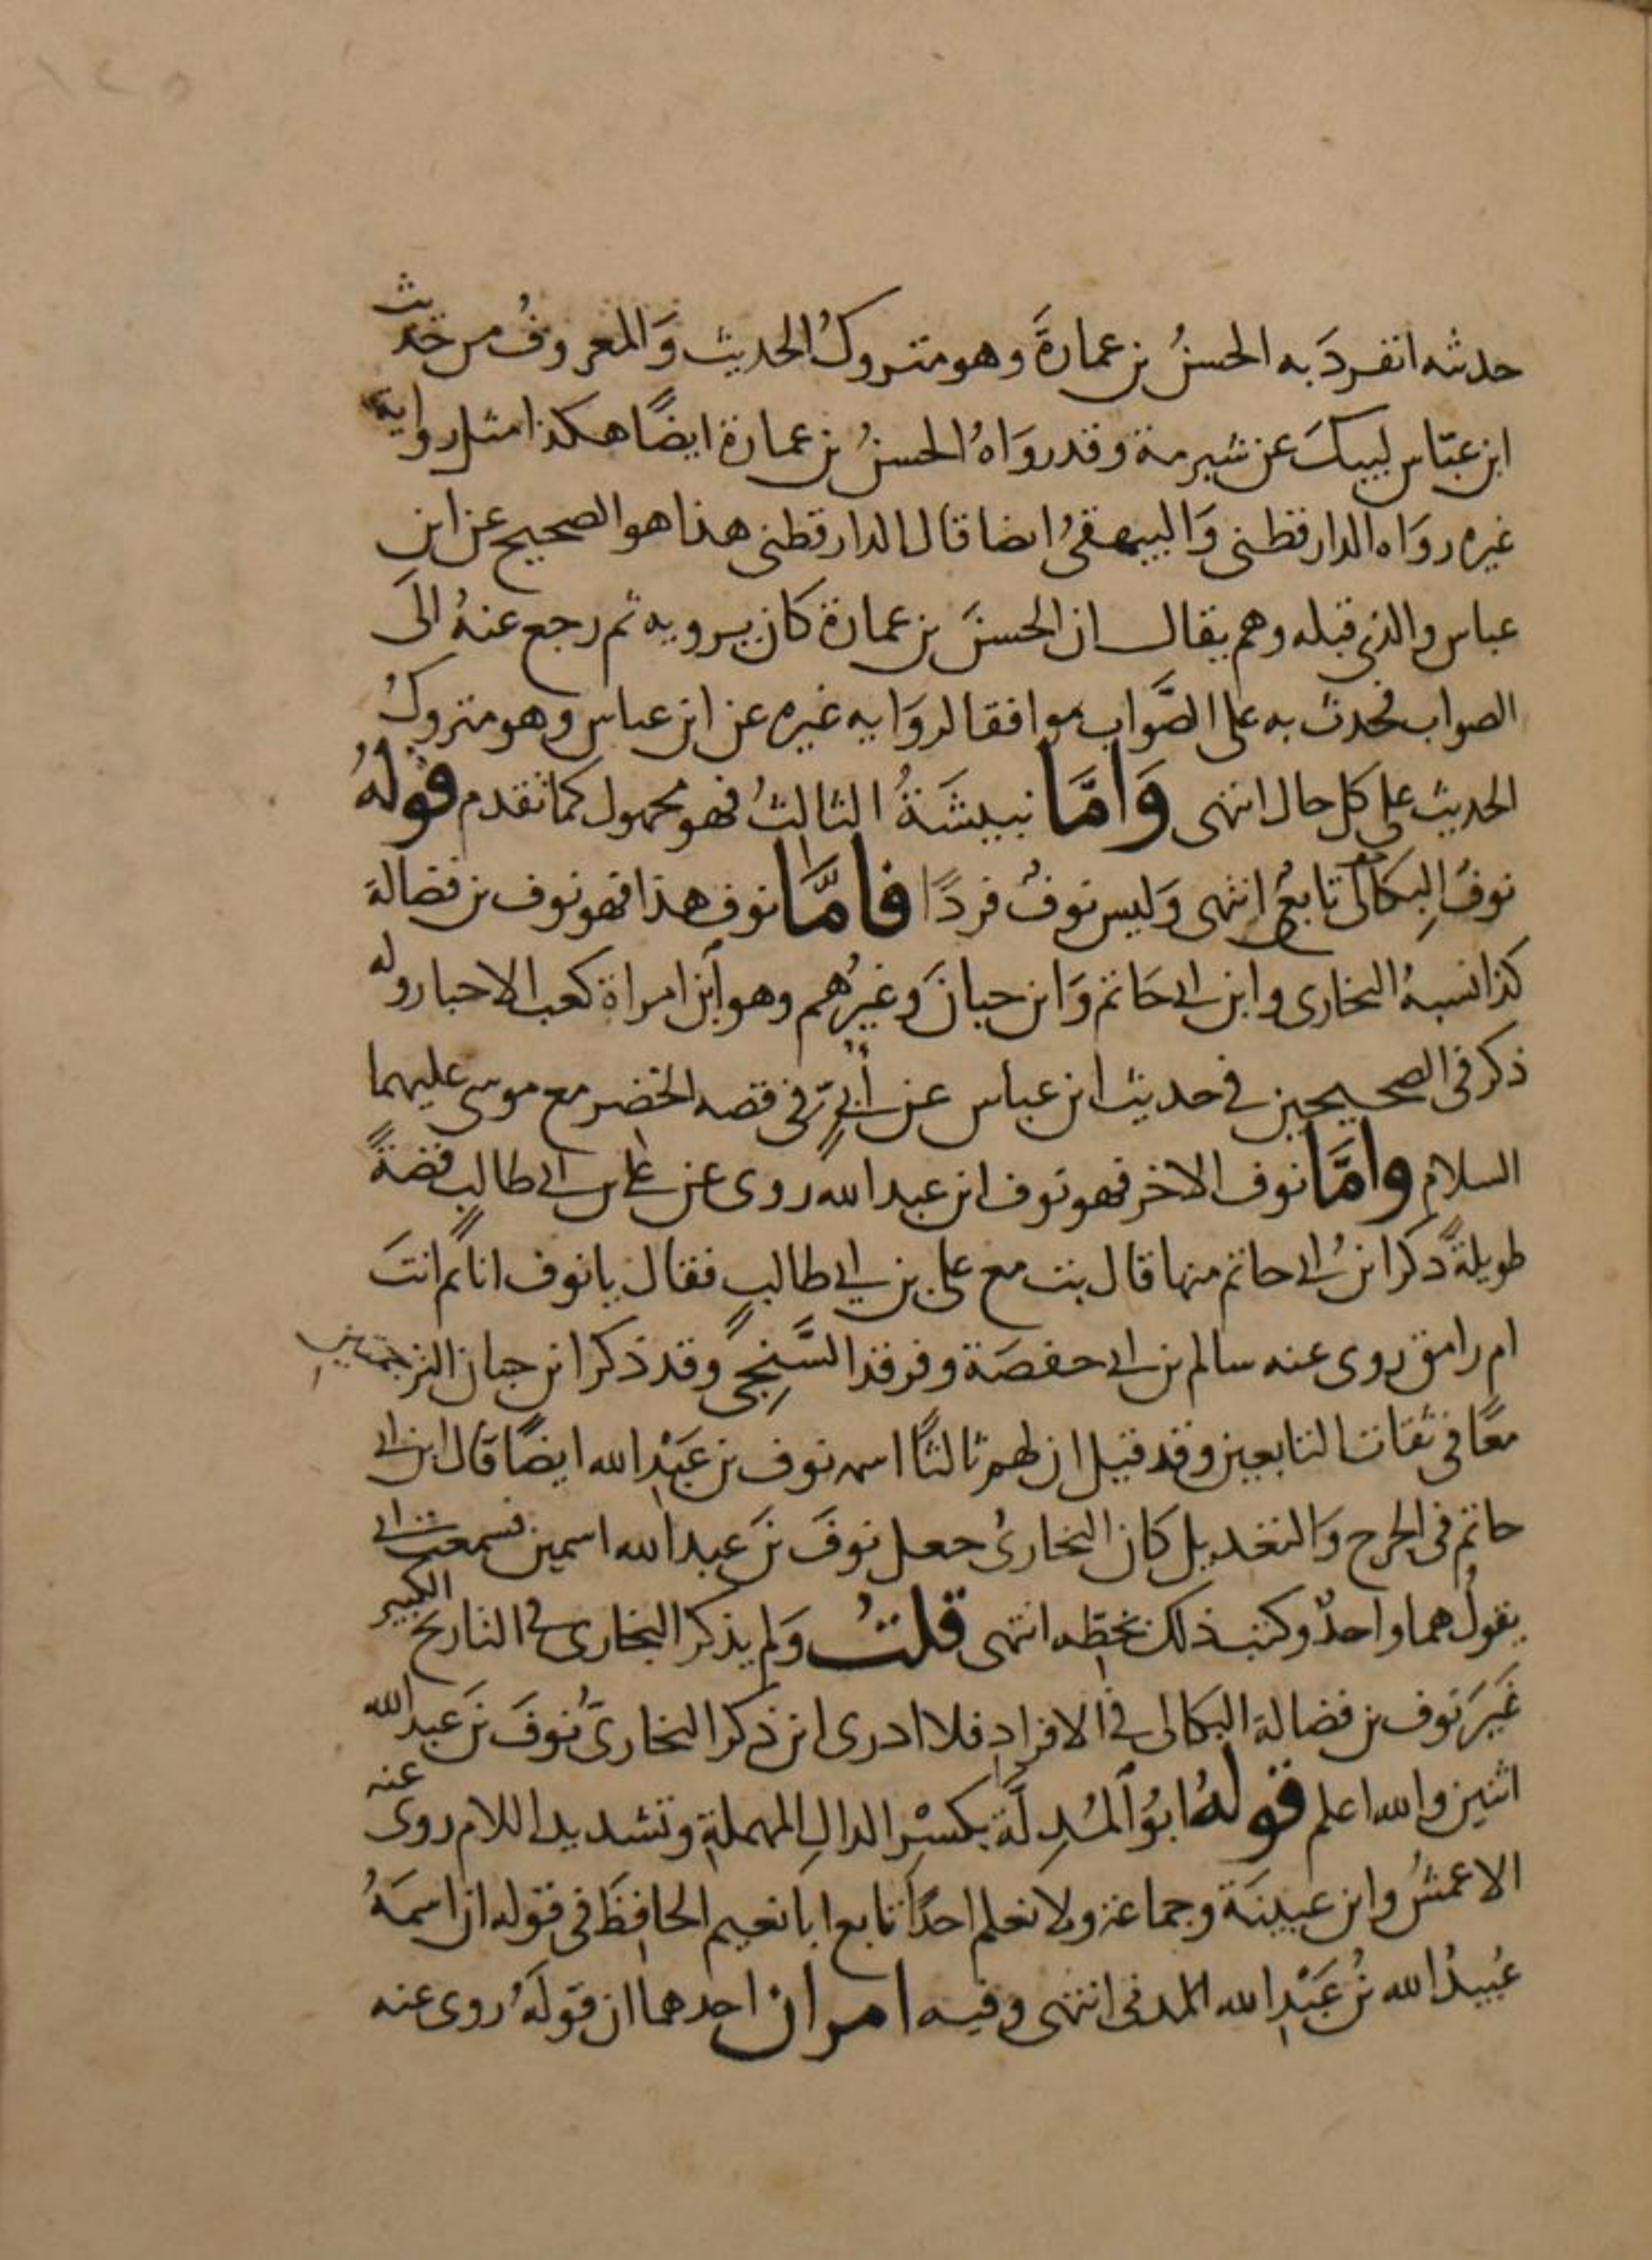 ١٤٥
حدثه انفردَ به الحسنُ بن عمارةَ وهو متروكُ الحديث وَالمعروفُ من حديث
ابن عبّاس لبيكَ عن شبرمة وقد روَاهُ الحسنُ بن عمارة ايضًا هكذا مثل رواية
غيره روَاه الدارقطنى وَالبيهقىُ ايضا قال الدارقطنى هذا هو الصحيح عن ابن
عباس والذى قبله وهم يقال ان الحسنَ بن عمارة كان يرويه ثم رجع عنهُ الَى
الصواب فحدث به على الصَّواب موافقا لروَايه غيره عن ابن عباس وهو متروكُ
الحديث على كل حال انتهى وَامَّا نبيشَةُ الثالثُ فهو مجهول كما تقدم قولهُ
نوفُ البِكالى تابعىُ انتهى وَليس نوفُ فردًا فامَّا نوف هذا فهو نوف بن فضالة
كذا نسبهُ البخارى وابن ابى حَاتم وَابن حبانَ وَغيرُهم وهو ابن امراة كعب الاحبار وله
ذكر فى الصحيحين فى حديث ابن عباس عن أبىّ فى قصه الخضر مع موسى عليهما
السلام وامَّا نوف الاخر فهو نوف ابن عبد الله روى عن على بن ابى طالب قصةً
طويلةً ذكر ابنُ ابى حاتم منها قال بت مع على بن ابي طالبٍ فقال يا نوف انائم انتَ
ام رامق روى عنه سالم بن ابى حفصَة وفرقد السَّبَخِىُ وقد ذكر ابن حبان الترجمتين
معًا فى ثقات التابعين وقد قيل ان لهم ثالثًا اسمه نوف بن عَبْدِ الله ايضًا قال ابن ابى
حاتم فى الجرح وَالتعديل كان البخارىُ جعل نوفَ بنَ عبد الله اسمين فسمعت ابى
يقولُ هما واحدٌ وكتب ذلك بخطِّه انتهى قلتُ وَلم يذكر البخارى فى التاريخ الكبير
غَيرَ نوف بن فضالة البكالى فى الافرادِ فلا ادرى اين ذكر البخارىُّ نوفَ بنَ عبد الله
اثنين والله اعلم قولهُ ابوُ المُدِلَّة بكسْرِ الدال المهملةِ وتشديد اللام روى عنه
الاعمشُ وابن عيينَة وجماعة ولا نعلم احدًا تابع ابا نعيم الحافِظَ فى قوله ان اسمَهُ
عُبيدُ الله بنُ عَبْدِ الله المدنى انتهى وفيه امران احدهما ان قولَهُ روى عنه